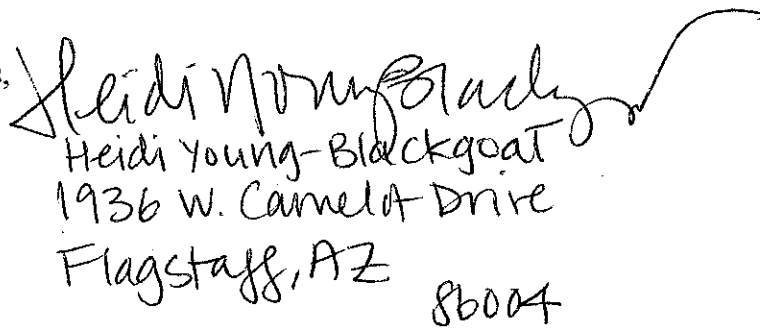 Heidi Young-Blackgoat
Heidi Young-Blackgoat
1936 W. Camelot Drive
Flagstaff, AZ
86004